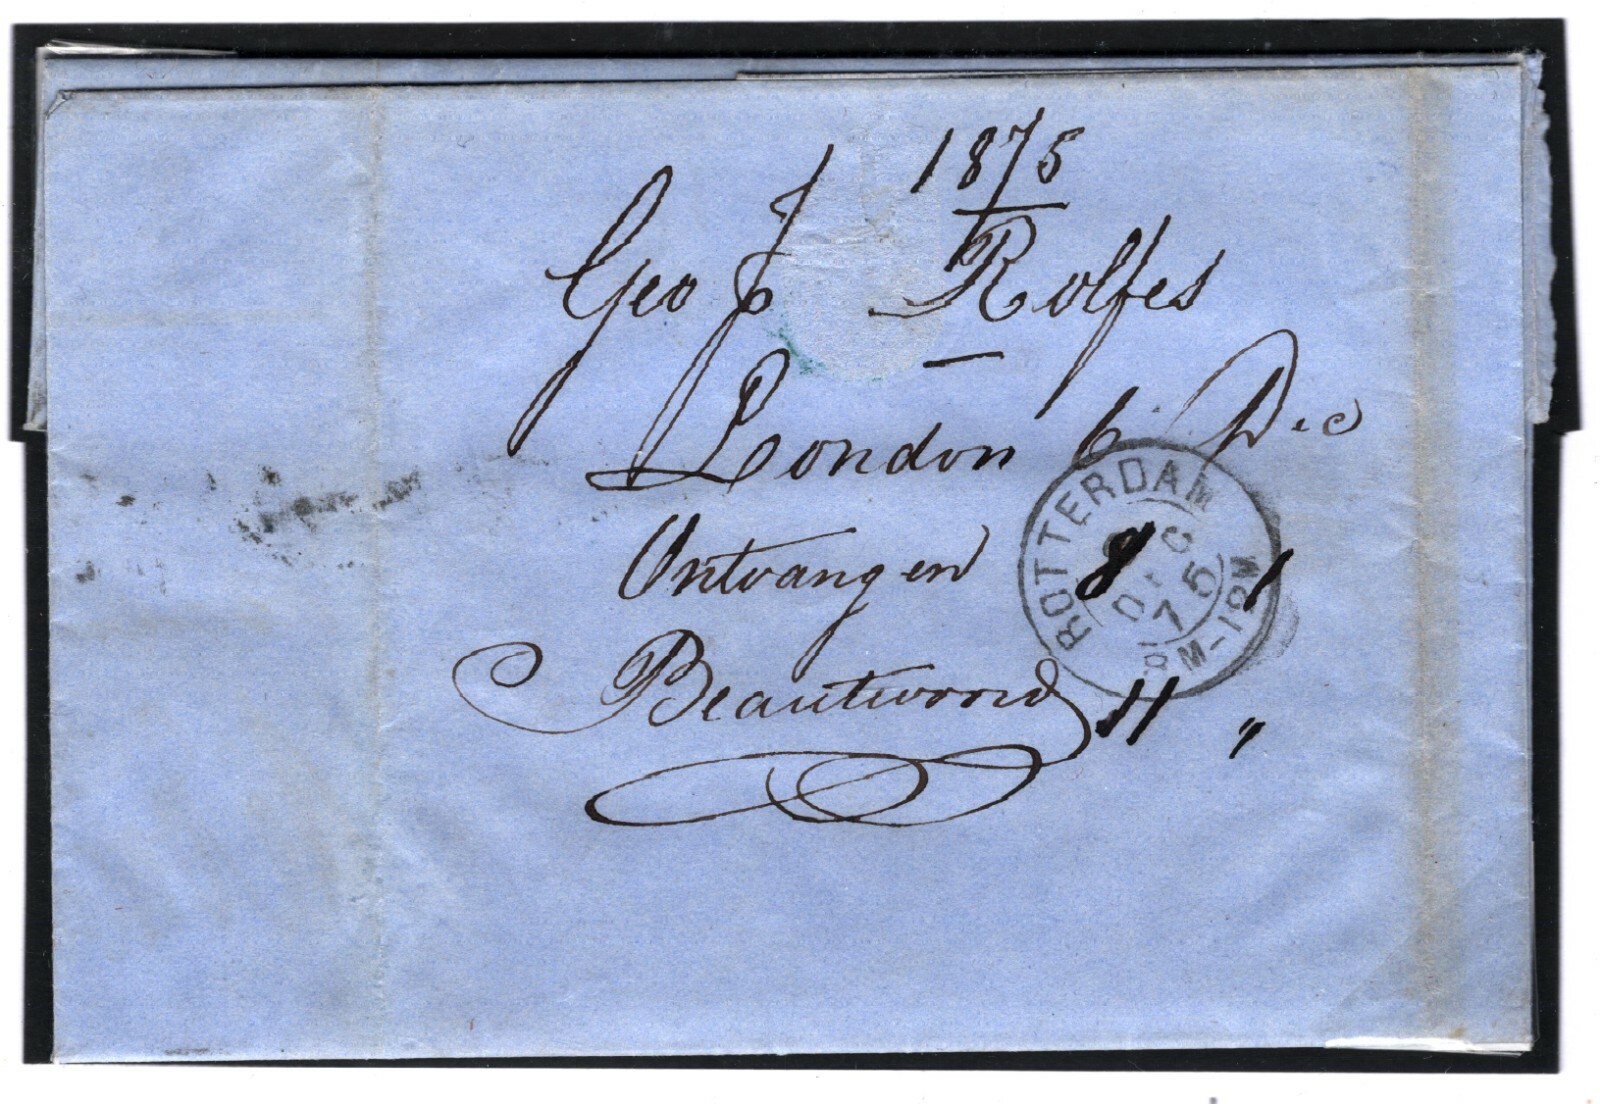 1875
Geo J Rolfes
London 6 Dec
Ontvangen 8 "
Beantwoord 11 "
ROTTERDAM
DEC
75
M-12M